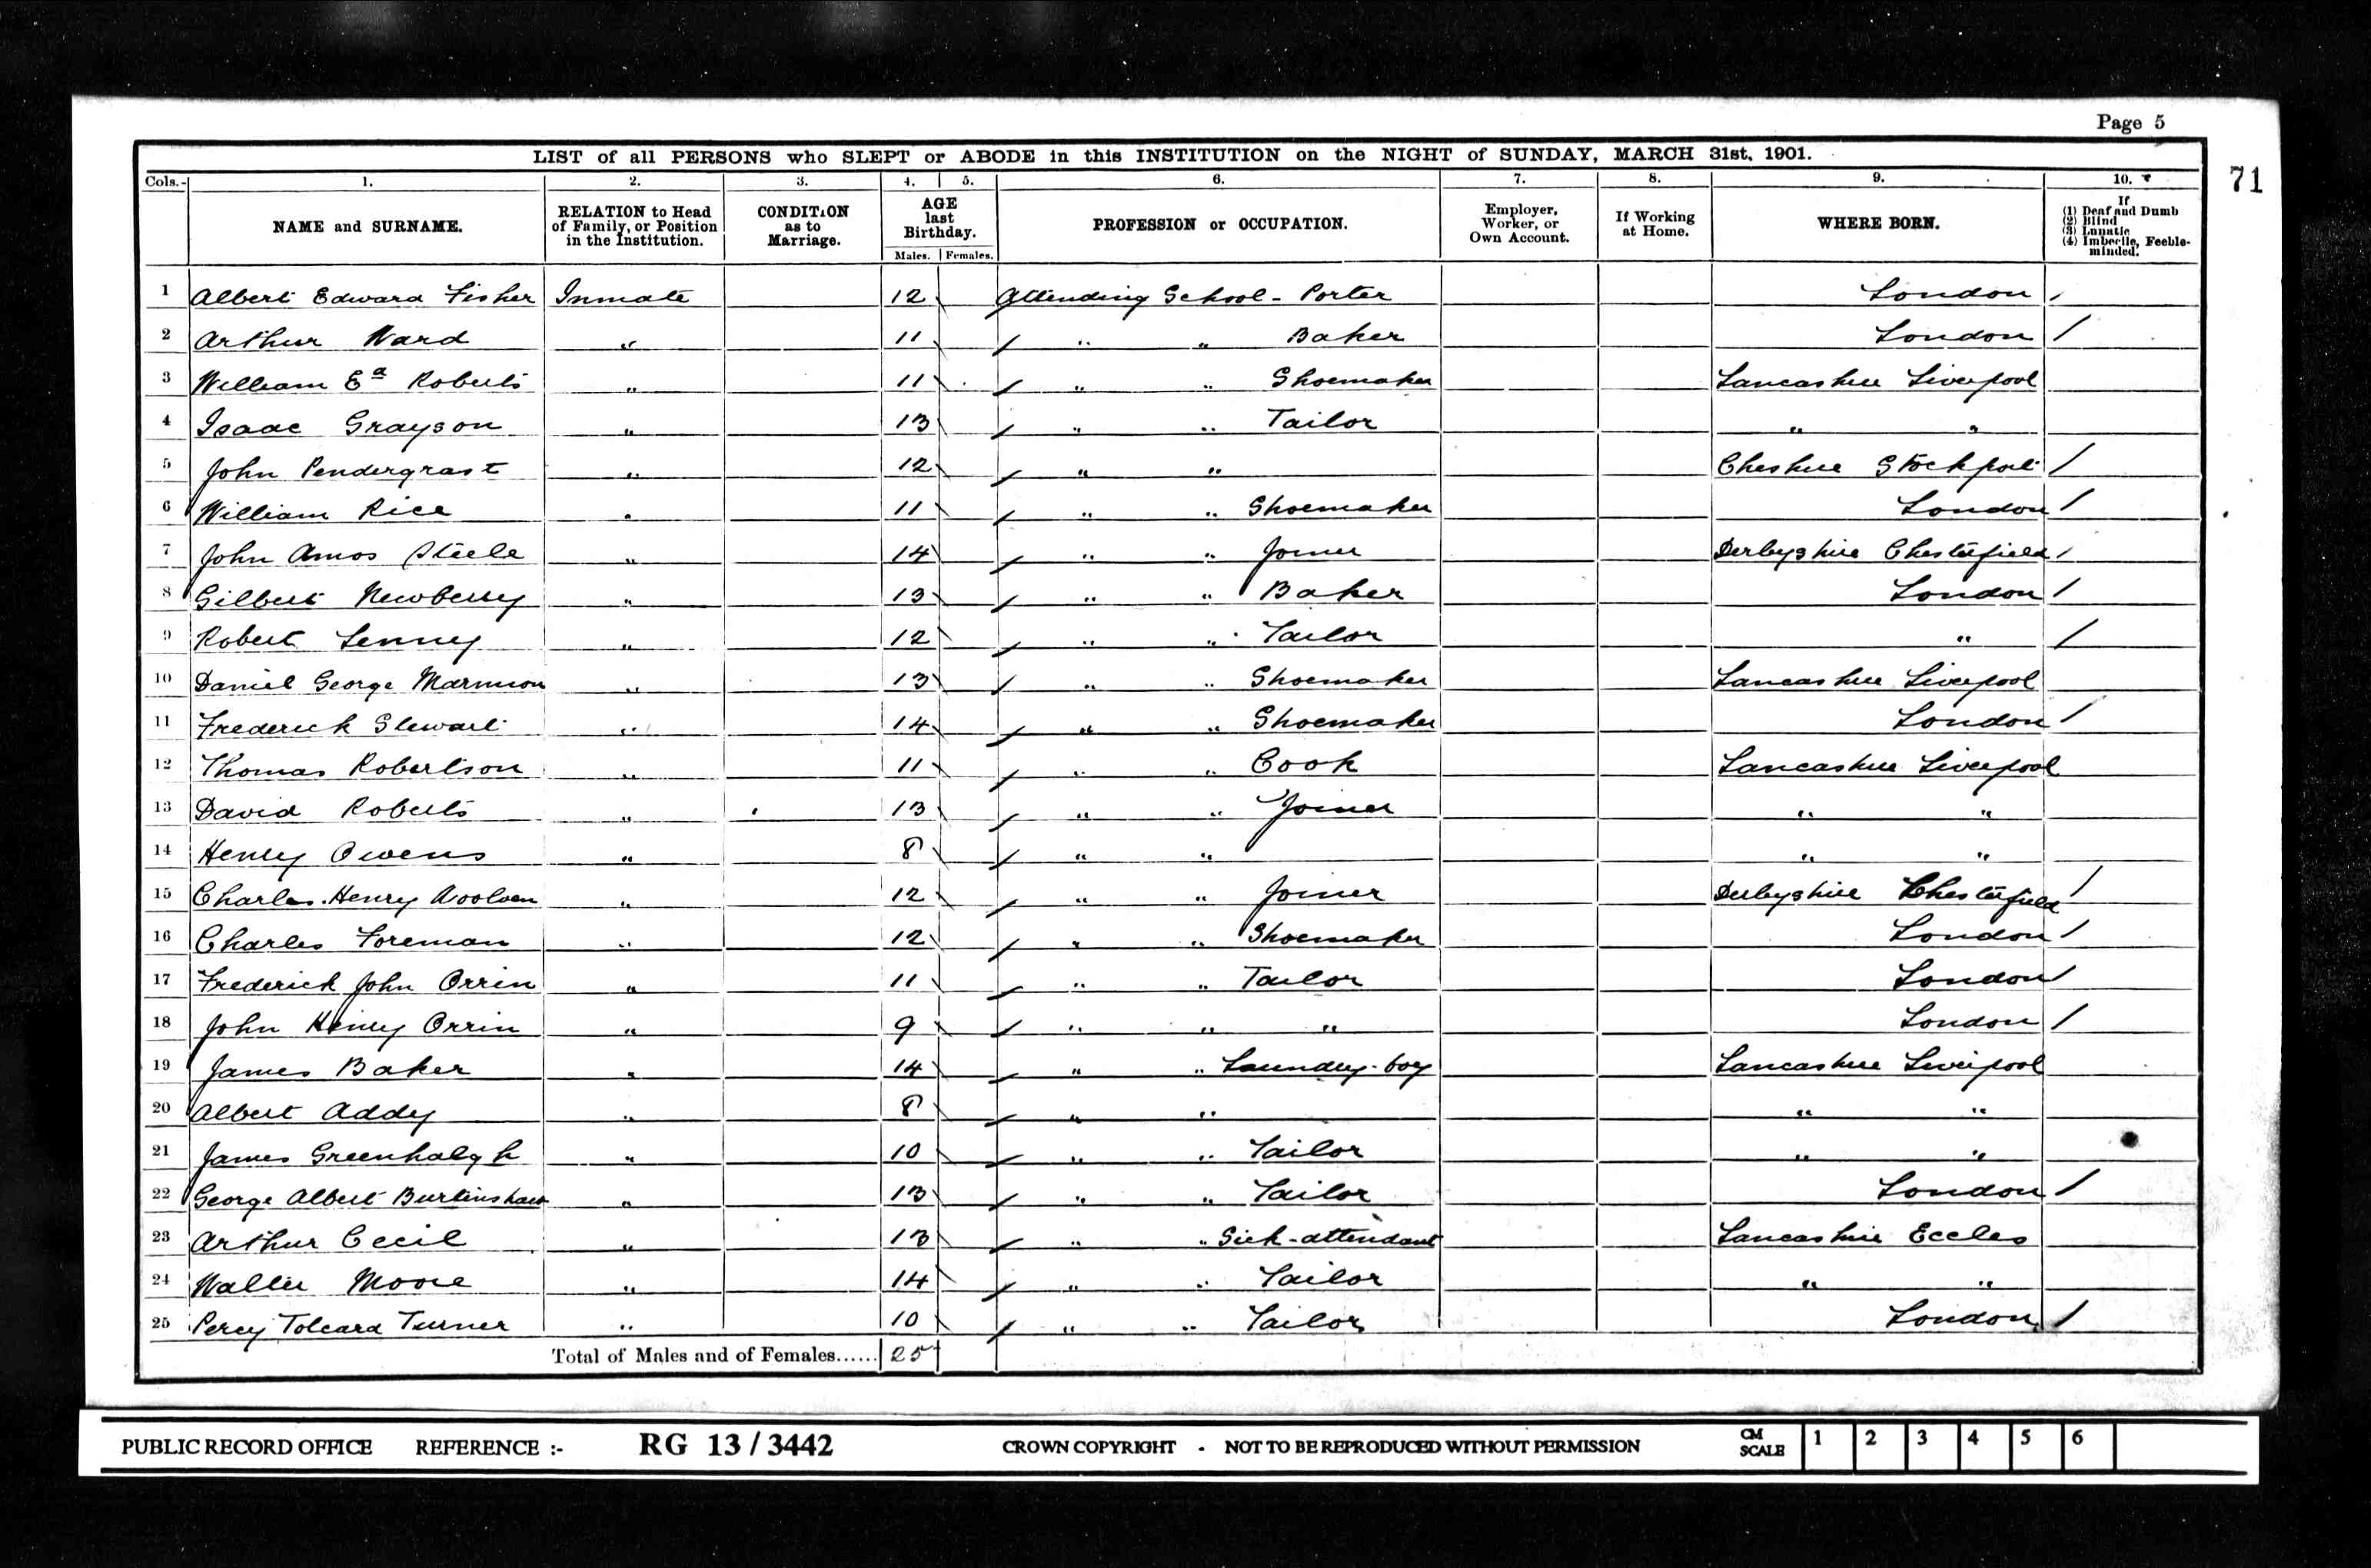 Page 5
71
LIST of all PERSONS who SLEPT or ABODE in this INSTITUTION on the NIGHT of SUNDAY, MARCH 31st, 1901.
Cols.- 1. 2. 3. 4. 5. 6. 7. 8. 9. 10.
NAME and SURNAME. RELATION to Head of Family, or Position in the Institution. CONDITION as to Marriage. AGE last Birthday. Males. Females. PROFESSION or OCCUPATION. Employer, Worker, or Own Account. If Working at Home. WHERE BORN. If (1) Deaf and Dumb (2) Blind (3) Lunatic (4) Imbecile, Feeble-minded.
1 Albert Edward Fisher Inmate 12 Attending School - Porter London
2 Arthur Ward " 11 " " Baker London /
3 William Ed Roberts " 11 " " Shoemaker Lancashire Liverpool
4 Isaac Grayson " 13 " " Tailor " "
5 John Pendergrast " 12 " " Cheshire Stockport /
6 William Rice " 11 " " Shoemaker London /
7 John Amos Steele " 14 " " Joiner Derbyshire Chesterfield /
8 Gilbert Newberry " 13 " " Baker London /
9 Robert Lenney " 12 " " Tailor " /
10 Daniel George Marmion " 13 " " Shoemaker Lancashire Liverpool
11 Frederick Stewart " 14 " " Shoemaker London /
12 Thomas Robertson " 11 " " Cook Lancashire Liverpool
13 David Roberts " 13 " " Joiner " "
14 Henry Owens " 8 " " " "
15 Charles Henry Woolven " 12 " " Joiner Derbyshire Chesterfield /
16 Charles Foreman " 12 " " Shoemaker London /
17 Frederick John Orrin " 11 " " Tailor London /
18 John Henry Orrin " 9 " " " London /
19 James Baker " 14 " " Laundry-boy Lancashire Liverpool
20 Albert Addy " 8 " " " "
21 James Greenhalgh " 10 " " Tailor " "
22 George Albert Burtinshaw " 13 " " Tailor London /
23 Arthur Cecil " 13 " " Sick-attendant Lancashire Eccles
24 Walter Moore " 14 " " Tailor " "
25 Percy Turner " 10 " " Tailor London /
Total of Males and of Females...... 25
PUBLIC RECORD OFFICE REFERENCE :- RG 13 / 3442 CROWN COPYRIGHT - NOT TO BE REPRODUCED WITHOUT PERMISSION CM SCALE 1 2 3 4 5 6